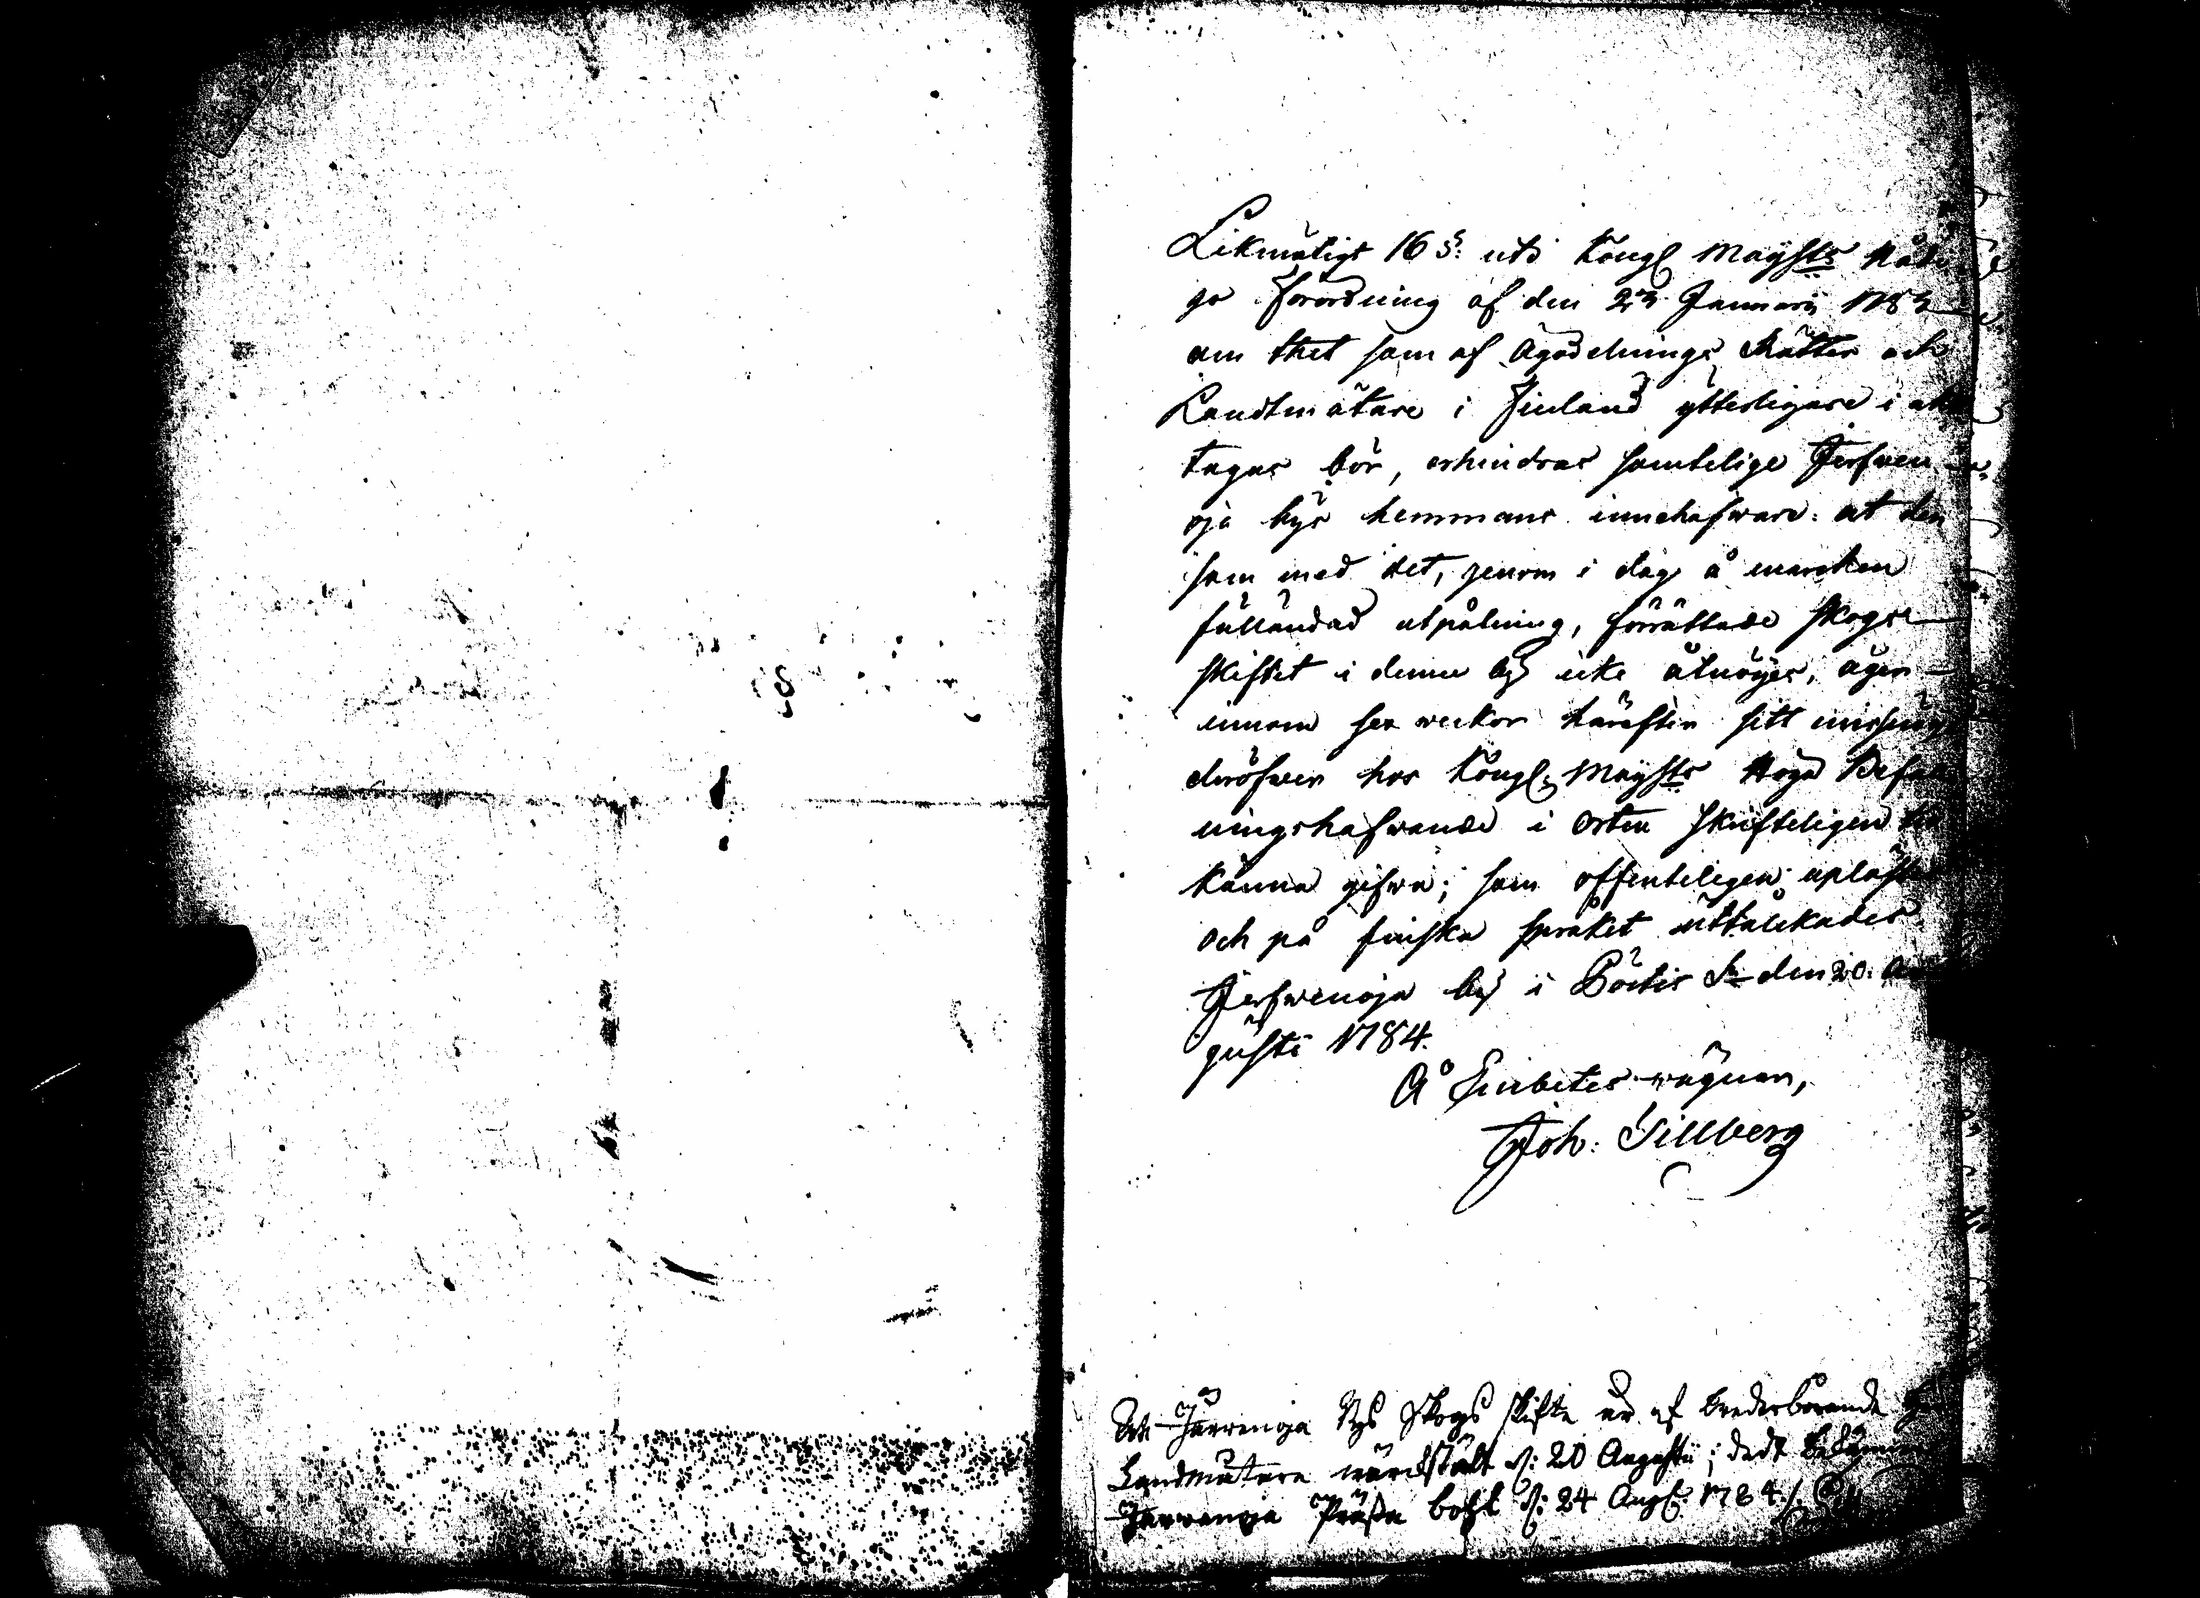 Likmätigt 16 §: uti Kongl Maysts Nådi
ge Förordning af den 27 Januarii 1783
om thet som af Ägodelnings Rätter och
Landtmätare i Finland ytterligare i akt
tagas bör, erhindras samtelige Jerfwen
oja bys hemmans innehafware: at den
som med det, genom i dag å marcken
fulländad utpålning, förrättade skogs
skiftet i denne by icke åtnöjes, äger
innom sex weckor härefter sitt missnöje
deröfwer hos Kongl: Maysts Höga Befall
ningshafwande i Orten skrifteligen till
känna gifwa; som offenteligen uplästes
och på finska språket uttålckades.
Jerfwenoja by i Pöitis Sn den 20. Au
gusti 1784.
Å Embetes wägnar,
Joh: Tillberg
At Järvenoja Bys Skogs skifte är af vederbörande
Landmätare wärckstält d: 20 Augustii; dedt
Järwenoja Prässe bohl d: 24 Aug: 1784.